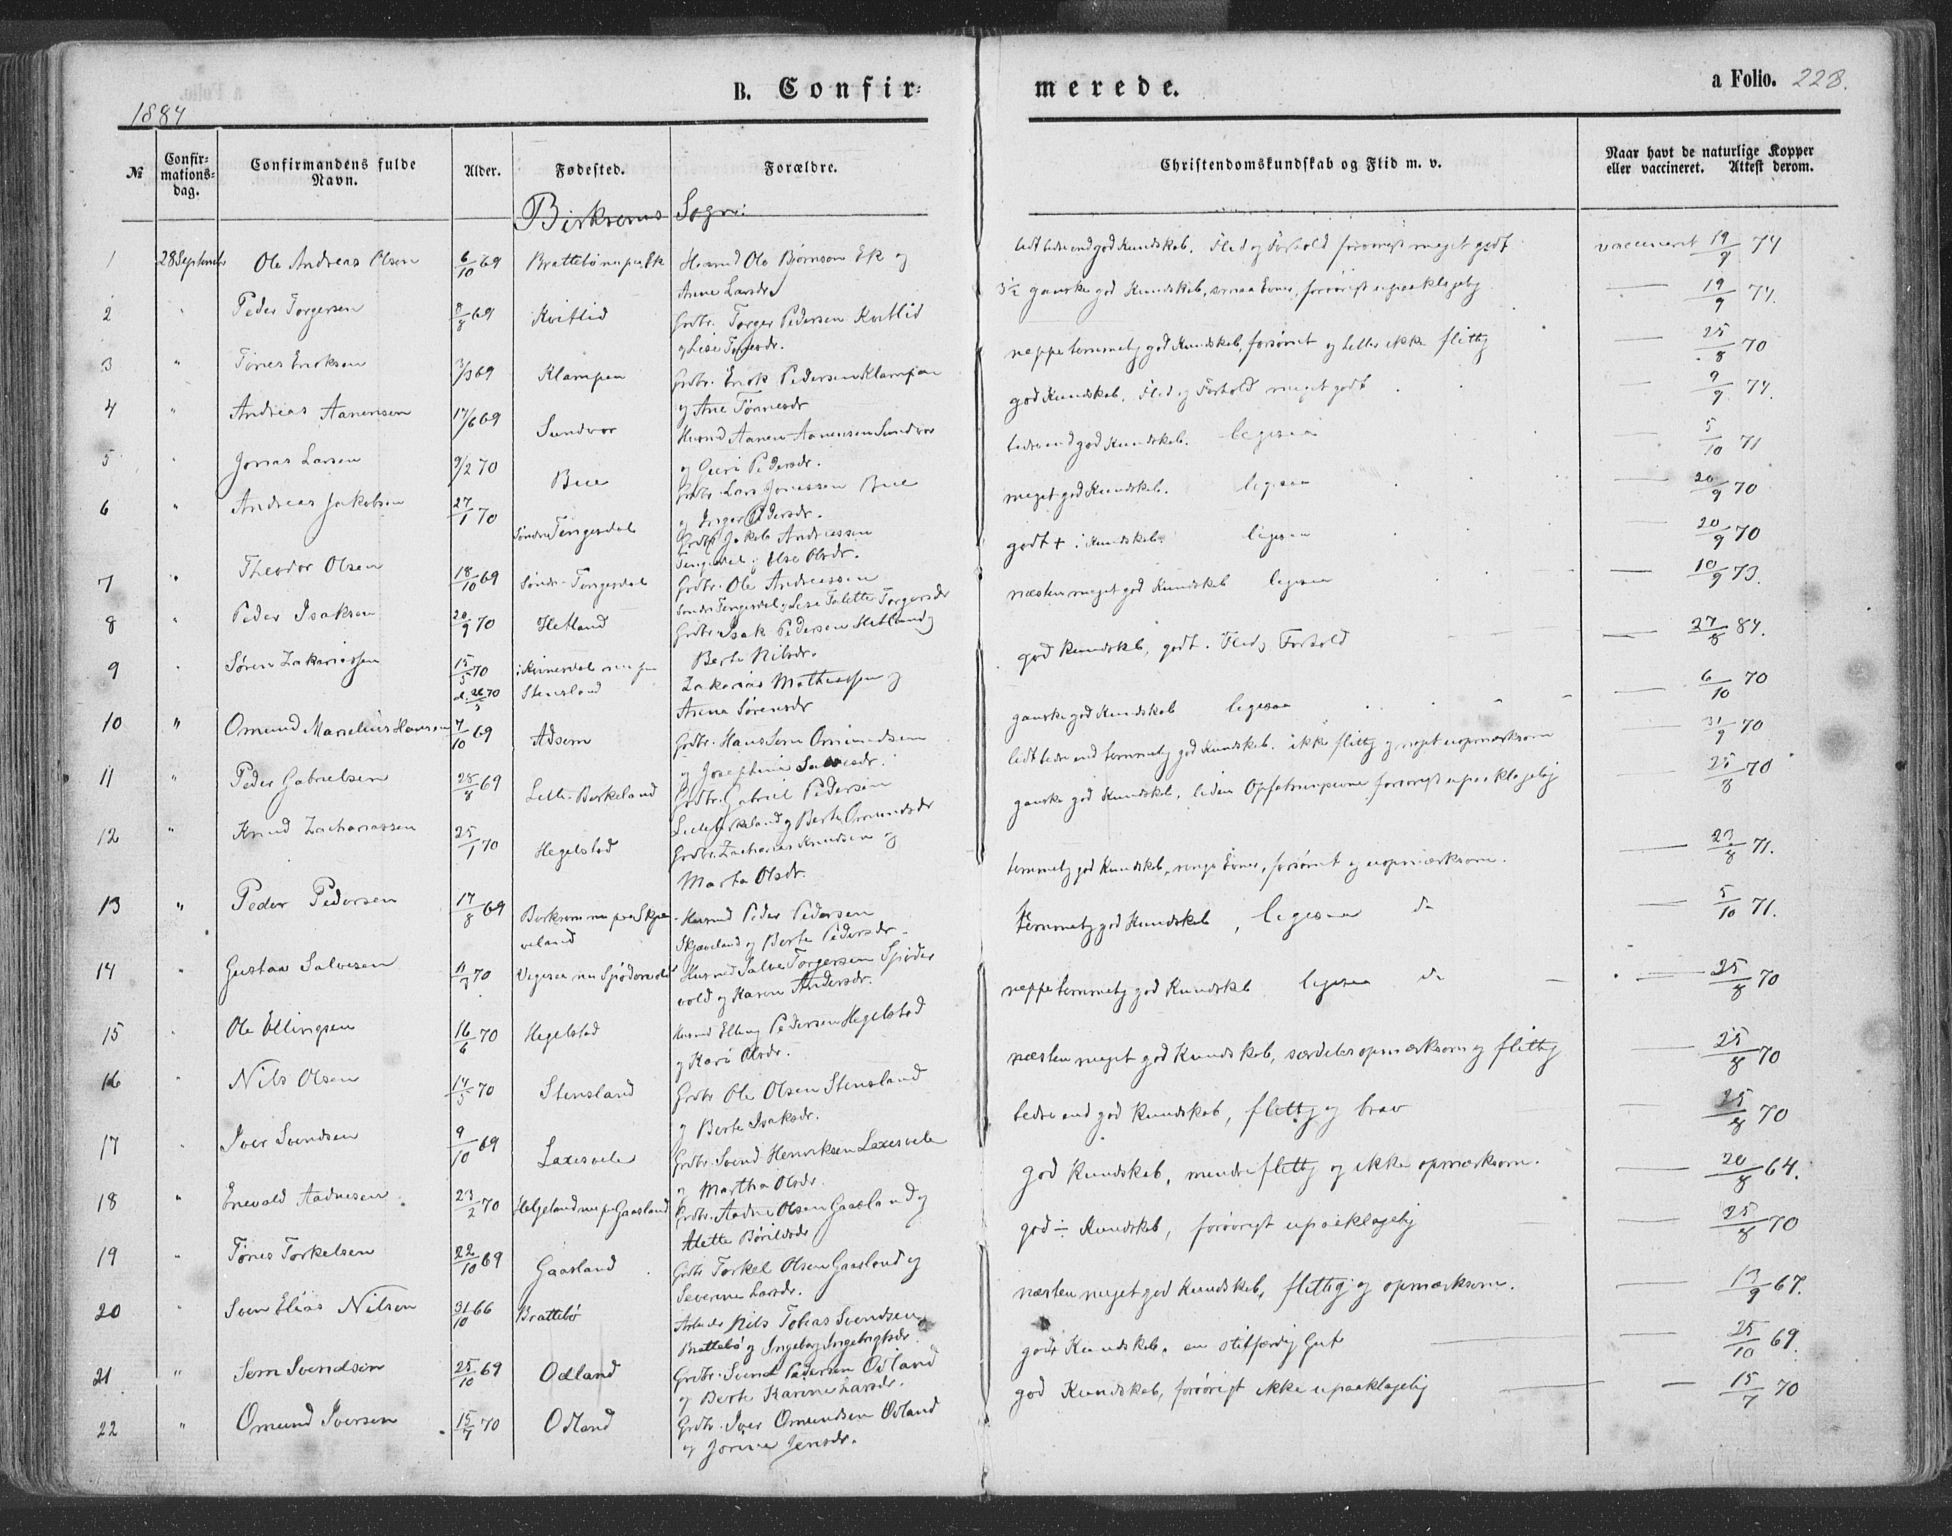 B. Confir-
merede.
a Folio. 223.
1884
№
Confir-
mations-
dag.
Confirmandens fulde
Navn.
Alder.
Fødested.
Forældre.
Christendomskundskab og Flid m. v.
Naar havt de naturlige Kopper
eller vaccineret. Attest derom.
Birkrems Sogn:
1 28 September Ole Andreas Olsen 6/10 69 Brattebø nu paa Ek Husmd Ole Bjørnsen Ek og
Anne Larsdr.
lidt bedre end god Kundskab. Flid og Forhold forøvrigt meget godt vaccineret 19/9 74
2 " Peder Torgersen 8/8 69 Kvitlid Grdbr. Torger Pedersen Kvitlid
og Lise
ganske god Kundskab, smaa Evner, forøvrigt upaaklagelig — 19/9 74.
3 " Tønes Eriksen 3/3 69 Klampen Grdbr. Erik Pedersen Klampen
og Ane Tønnesdr
neppe temmelig god Kundskab, forsømt og heller ikke flittig — 25/8 70
4 " Andreas Aanensen 17/6 69 Sundvor Husmd Aanen Aanensen Sundvor
og Guri Pedersdr.
god Kundskab, Flid og Forhold meget godt — 9/9 74.
5 " Jonas Larsen 9/2 70 Bue Grdbr Lars Jonassen Bue
og Inger Pedersdr.
bedre end god Kundskab. ligesaa — 5/10 71
6 " Andreas Jakobsen 27/1 70 Søndre Tengesdal Grdbr Jakob Andreassen
Tengesdal og Else Olsdr.
meget god Kundskab. ligesaa — 20/9 70
godt + i Kundskab. ligesaa — 20/9 70
7 " Theodor Olsen 18/10 69 Søndre Tengesdal Grdbr. Ole Andreassen
Søndre Tengesdal og Lise Talette Torgersdr
næsten meget god Kundskab ligesaa — 10/9 73.
8 " Peder Isaksen 20/9 70 Hetland Grdbr Isak Pedersen Hetland og
Berte Nilsdr.
god Kundskab, godt. Flid og Forhold — 27/8 84.
9 " Søren Zakariassen 15/5 70 i Kvinesdal nu paa
Stensland Zakarias Mathiassen og
Anna Sørensdr
ganske god Kundskab ligesaa — 6/10 70
10 " Omund Marselius Hansen 7/10 69 Adsem Grdbr. Hans Sem Omundsen
og Josephine
lidt bedre end temmelig god Kundskab. ikke flittig og noget uopmærksom — 31/9 70
11 " Peder Gabrielsen 28/8 69 Lille-Birkeland Grdbr. Gabriel Pedersen
Lille Birkeland og Berte Omundsdr
ganske god Kundskab, liden forøvrigt upaaklagelig — 25/8 70
12 " Knud Zachariassen 25/1 70 Hegelstad Grdbr. Zacharias Knudsen og
Marta Olsdr.
temmelig god Kundskab, ringe Evner, forsømt og uopmærksom. — 23/8 71.
13 " Peder Pedersen 17/8 69 Birkrem nu paa Skjæ-
veland Husmd Peder Pedersen
Skjæveland og Berte Pedersdr.
temmelig god Kundskab, ligesaa do — 5/10 71.
14 " Gustav Salvesen 11/7 70 Vegesaa nu Spødervold Husmd Salve Torgersen Spøder
vold og Karen Andersdr.
neppe temmelig god Kundskab ligesaa do — 25/8 70
15 " Ole Ellingsen 16/6 70 Hegelstad Husmd Elling Pedersen Hegelstad
og Kari Olsdr.
næsten meget god Kundskab, særdeles opmærksom og flittig — 25/8 70
16 " Nils Olsen 14/5 70 Stensland Grdbr Ole Olsen Stensland
og Berte Isaksdr.
bedre end god Kundskab, flittig og brav — 25/8 70
17 " Iver Svendsen 9/10 69 Laxesvele Grdbr. Svend Henriksen Laxesvele
og Martha Olsdr.
god Kundskab, mindre flittig og ikke opmærksom. — 20/8 64.
18 " Enevald Aadnesen 23/2 70 Helgeland nu paa Gaasland Grdbr. Aadne Olsen Gaasland og
Alette Børildsdr
god ÷ Kundskab, forøvrigt upaaklagelig — 25/8 70
19 " Tønes Torkelsen 22/10 69 Gaasland Grdbr Torkel Olsen Gaasland og
Severine Larsdr.
næsten meget god Kundskab, flittig og opmærksom. — 13/9 67.
20 " Sven Elias Nilsen 31/10 66 Brattebø Arbeider Nils Tobias Svendsen
Brattebø og Ingeborg Ingebrigtsdr
god Kundskab. en stilfærdig Gut — 25/10 69.
21 " Sem Svendsen 25/10 69 Odland Grdbr. Svend Pedersen Odland
og Berte Karine Larsdr.
god Kundskab, forøvrigt ikke upaaklagelig — 15/7 70
22 " Omund Iversen 15/7 70 Odland Grdbr. Iver Omundsen Odland
og Jorine Jensdr.